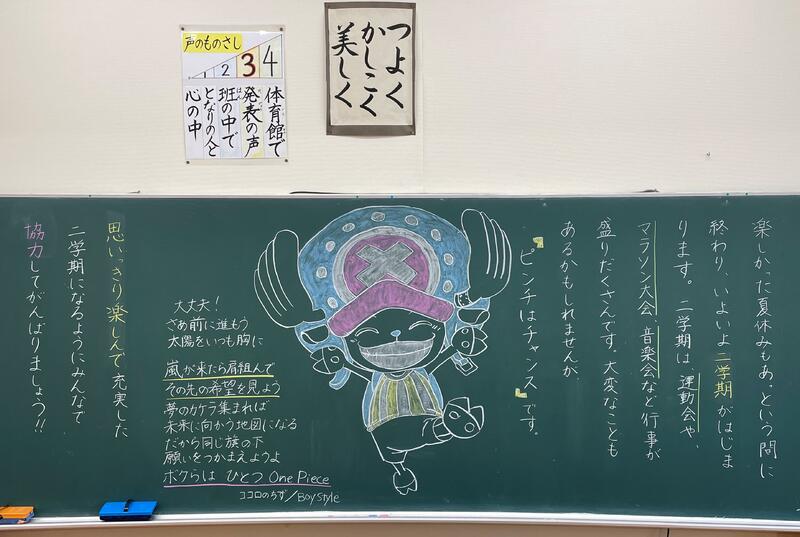 声のものさし
1 2 3 4
体育館で
発表の声
班の中で
となりの人と
心の中
つよく
かしこく
美しく
楽しかった夏休みもあっという間に
終わり、いよいよ二学期がはじま
ります。二学期は、運動会や、
マラソン大会、音楽会など行事が
盛りだくさんです。大変なことも
あるかもしれませんが、
ピンチはチャンスです。
大丈夫！
さあ前に進もう
太陽をいつも胸に
嵐が来たら肩組んで
その先の希望を見よう
夢のカケラ集まれば
未来に向かう地図になる
だから同じ旗の下
願いをつかまえようよ
ボクらは ひとつ One Piece
ココロのちず/BoyStyle
思いっきり楽しんで充実した
二学期になるようにみんなで
協力してがんばりましょう!!